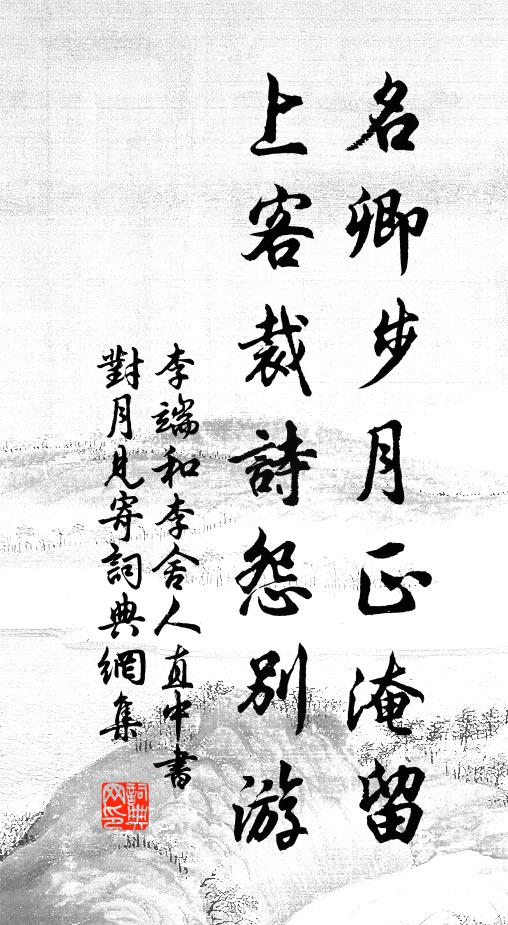 名卿步月正淹留
上客裁詩怨別游
李端和李舍人直中書
對月見寄詞典網集
詞典
网印